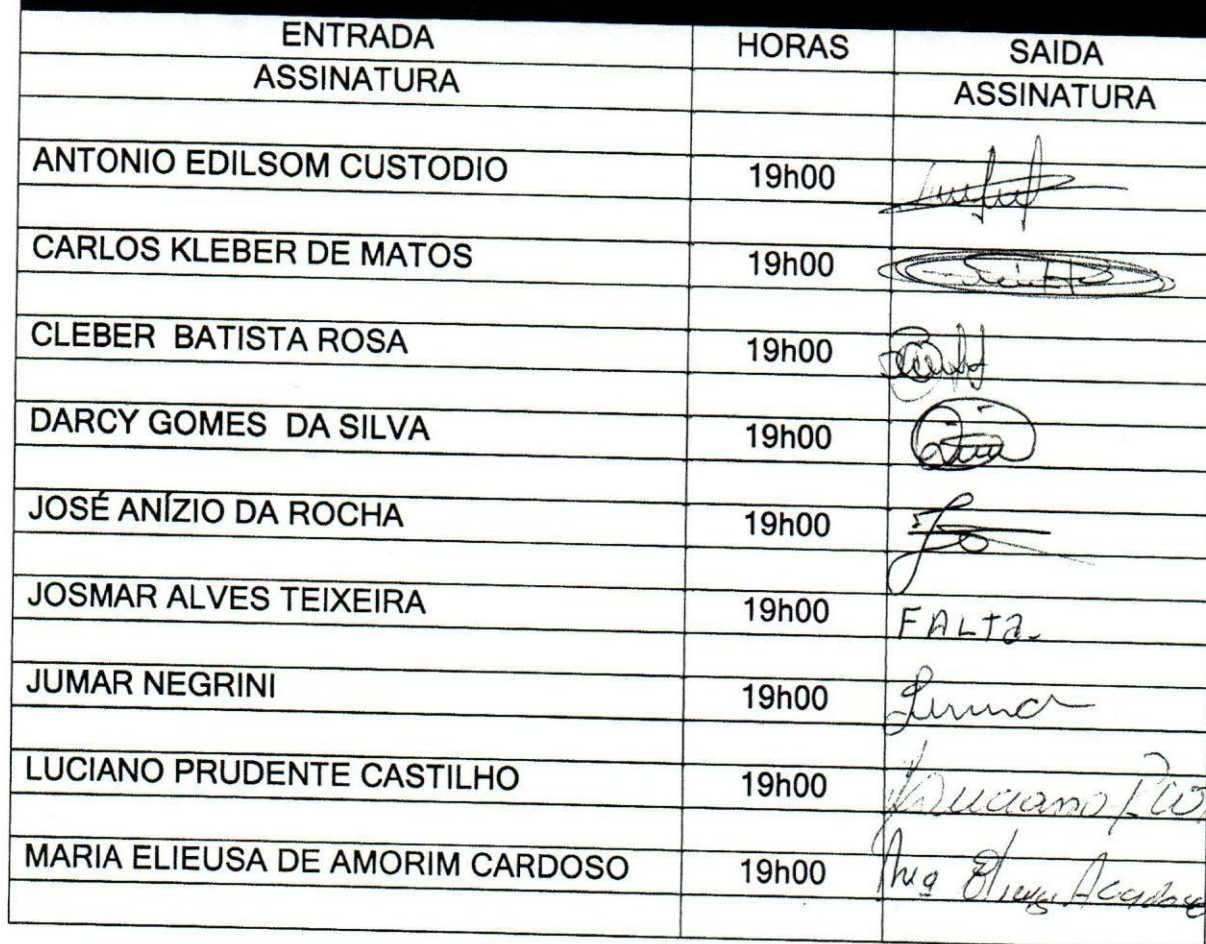 ENTRADA HORAS SAIDA
ASSINATURA ASSINATURA
ANTONIO EDILSOM CUSTODIO 19h00
CARLOS KLEBER DE MATOS 19h00
CLEBER BATISTA ROSA 19h00
DARCY GOMES DA SILVA 19h00
JOSÉ ANÍZIO DA ROCHA 19h00
JOSMAR ALVES TEIXEIRA 19h00 FALTA.
JUMAR NEGRINI 19h00
LUCIANO PRUDENTE CASTILHO 19h00 Luciano
MARIA ELIEUSA DE AMORIM CARDOSO 19h00